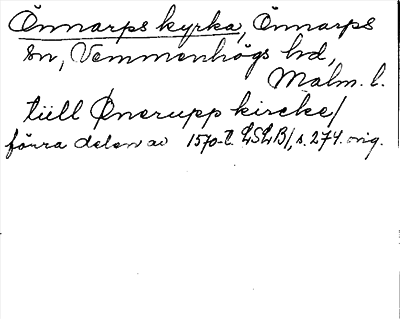 Önnarps kyrka, Önnarps
sn, Vemmenhögs hd,
Malm. l.
tiill Ønerupp kircke/
förra delen av 1570-t. LSLB/, s. 274. orig.